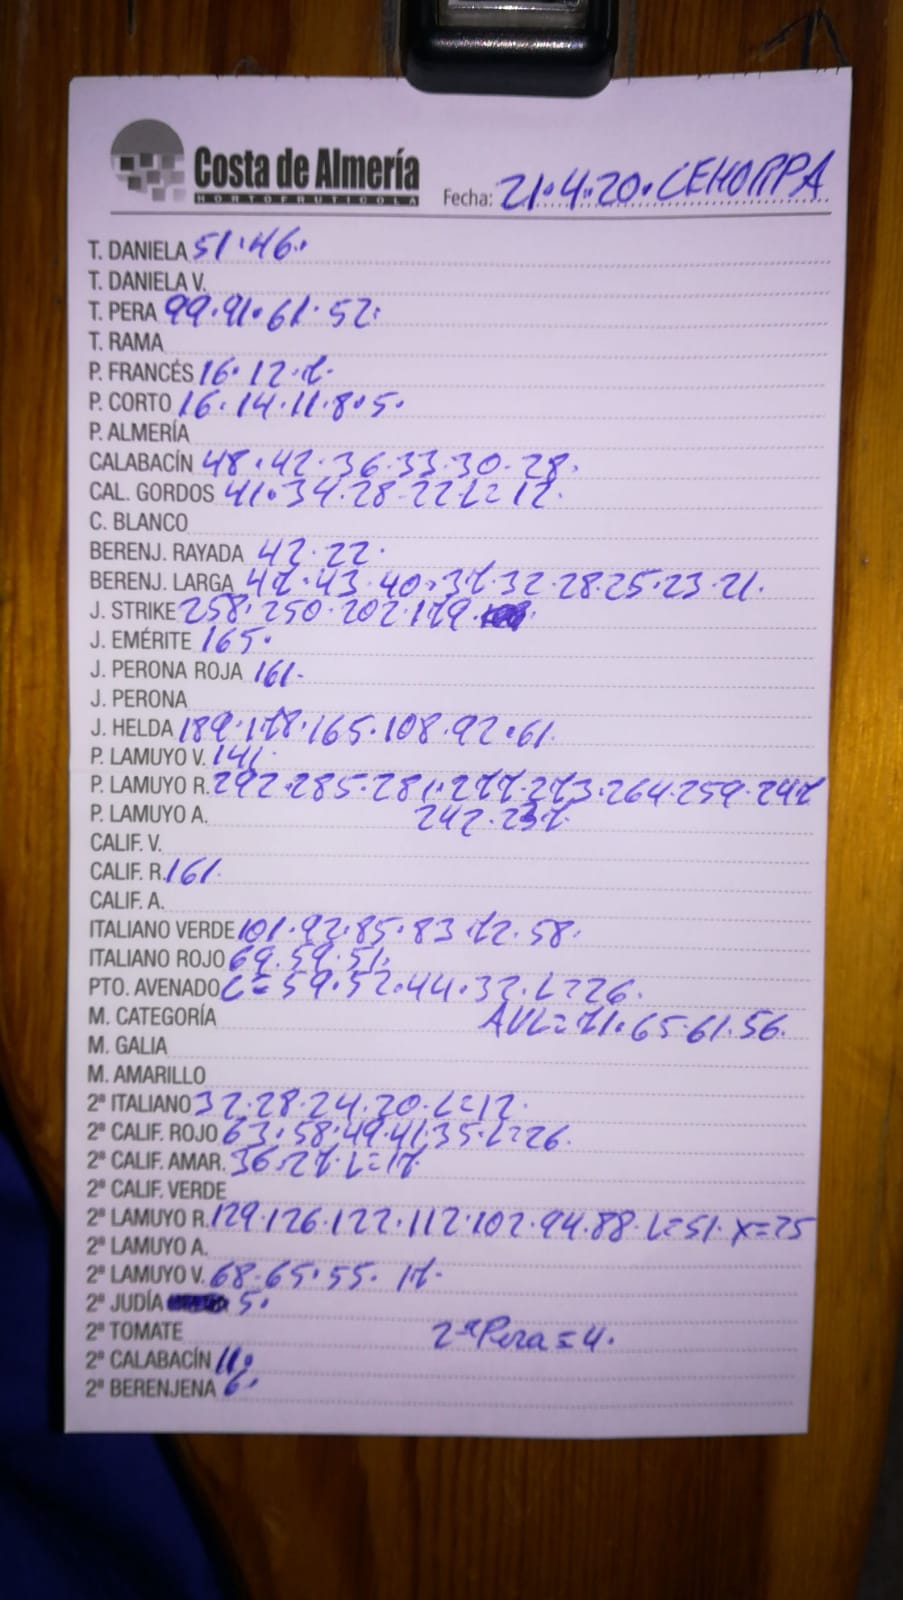 Costa de Almería
HORTOFRUTICOLA
Fecha: 21.4.20. CEHORPA
T. DANIELA 51.46.
T. DANIELA V.
T. PERA 99.91.61.52.
T. RAMA
P. FRANCÉS 16.12.7.
P. CORTO 16.14.11.8.5.
P. ALMERÍA
CALABACÍN 48.42.36.33.30.28.
CAL. GORDOS 41.34.28.22 L=12.
C. BLANCO
BERENJ. RAYADA 42.22.
BERENJ. LARGA 47.43.40.37.32.28.25.23.21.
J. STRIKE 258.250.202.179.
J. EMÉRITE 165.
J. PERONA ROJA 161.
J. PERONA
J. HELDA 189.178.165.108.92.61.
P. LAMUYO V. 141.
P. LAMUYO R. 292.285.281.277.273.264.259.247
P. LAMUYO A. 242.237.
CALIF. V.
CALIF. R. 161.
CALIF. A.
ITALIANO VERDE 101.92.85.83.72.58.
ITALIANO ROJO 69.59.51.
PTO. AVENADO C=59.52.44.32.L=26.
M. CATEGORÍA AVL=71.65.61.56.
M. GALIA
M. AMARILLO
2ª ITALIANO 32.28.24.20.L=12.
2ª CALIF. ROJO 63.58.49.41.35.L=26.
2ª CALIF. AMAR. 36.27.L=17.
2ª CALIF. VERDE
2ª LAMUYO R. 129.126.122.112.102.94.88.L=51.X=25
2ª LAMUYO A.
2ª LAMUYO V. 68.65.55. 17.
2ª JUDÍA 5.
2ª TOMATE 2ª Pera=4.
2ª CALABACÍN 11.
2ª BERENJENA 6.